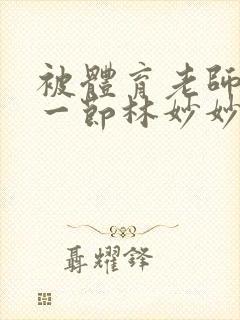 被體育老師
一節林妙妙
聶耀鋒